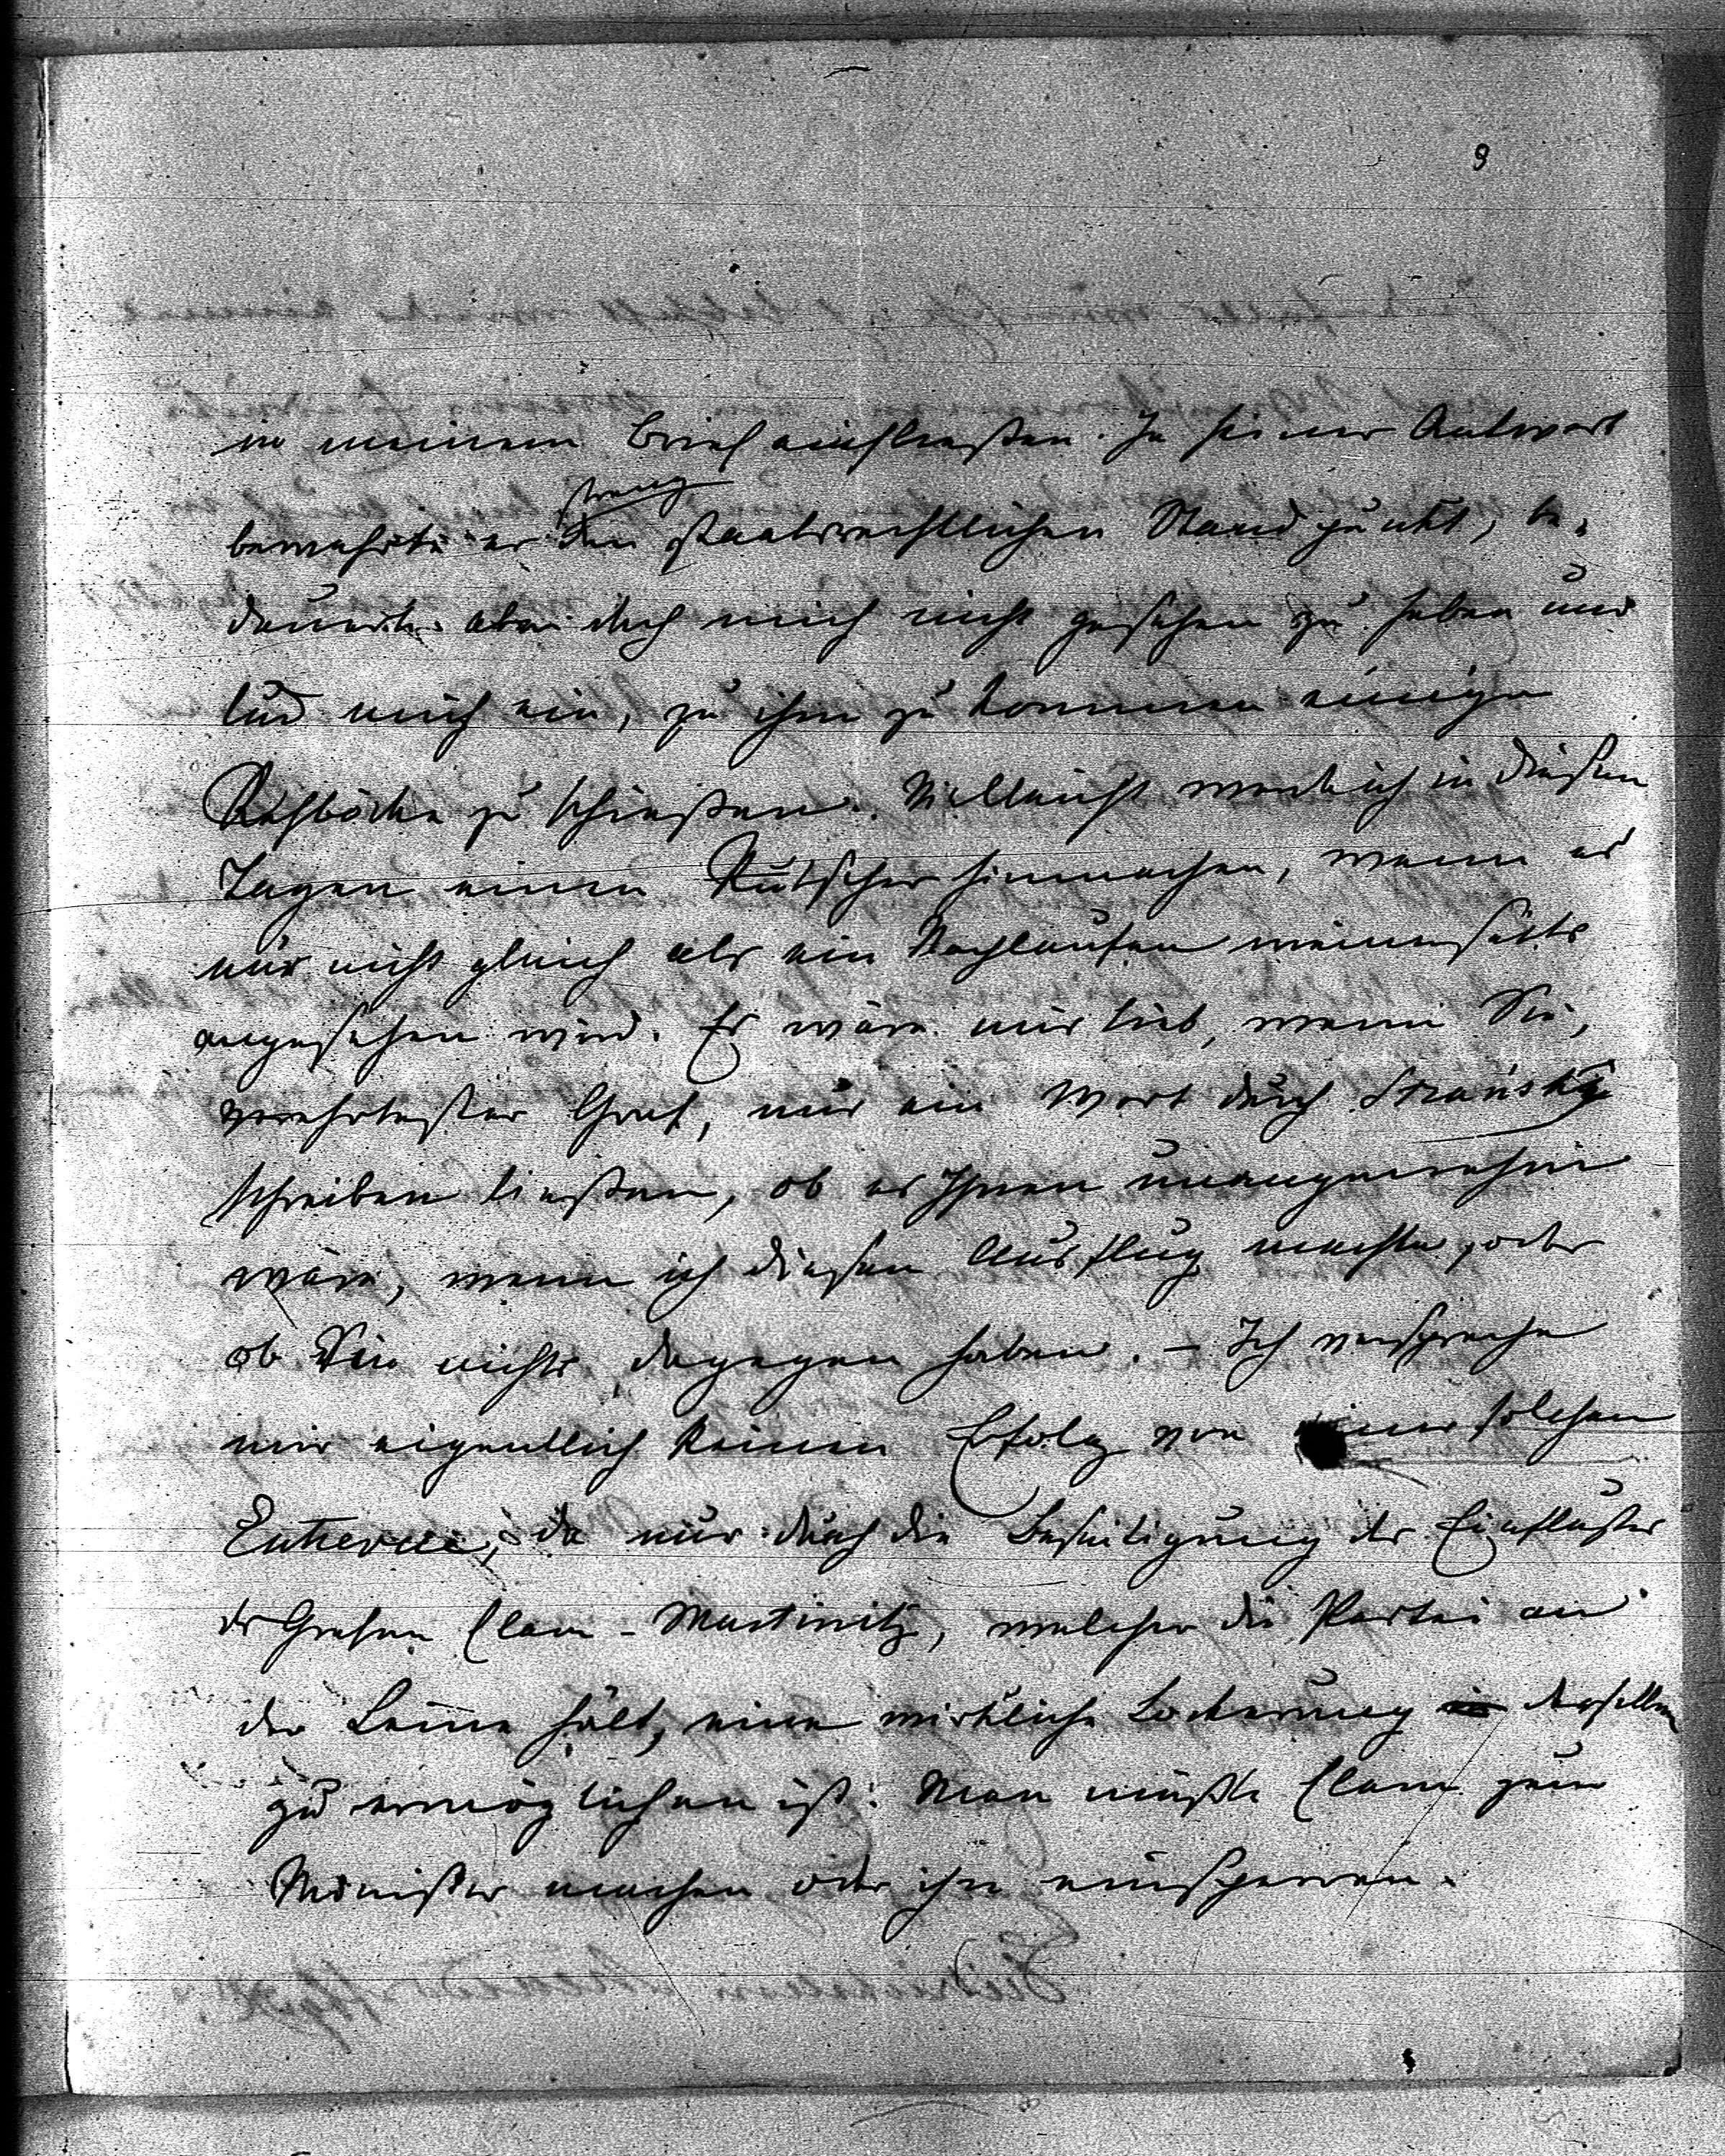 9
in meinem Brief einfließen. In seiner Antwort
streng
bewahrte er den staatsrechtlichen Standpunkt, be-
dauerte aber doch mich nicht gesehen zu haben und
lud mich ein, zu ihm zu kommen einige
Rehböcke zu schießen. Vielleicht werde ich in diesen
Tagen einen Rutscher hinmachen, wenn es
nur nicht gleich als ein Nachlaufen meinerseits
angesehen wird. Es wäre mir lieb, wenn Sie,
verehrtester Graf, mir ein Wort durch Stransky
schreiben ließen, ob es Ihnen unangenehm
wäre, wenn ich diesen Ausflug machte, oder
ob Sie nichts dagegen haben. – Ich verspreche
mir eigentlich keinen Erfolg von einer solchen
Entrevue, da nur durch die Beseitigung des Einflußes
des Grafen Clam-Martinitz, welcher die Partei an
der Leine hält, eine wirkliche Lockerung derselben
zu ermöglichen ist. Man müßte Clam zum
Minister machen oder ihn einsperren.